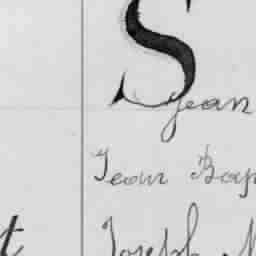 S
Jean
Jean Bap
t Joseph